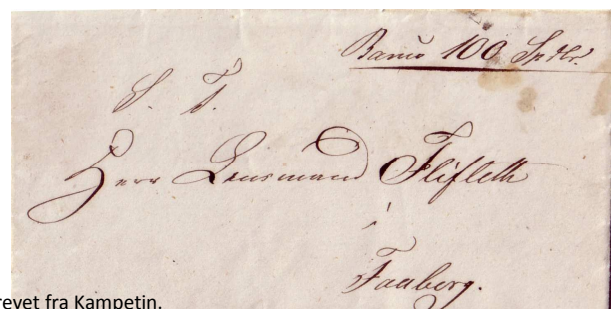 Banco 100 Spdlr.
S. T.
Herr Lensmand Flifleth
i
Faaberg.
revet fra Kampetin.